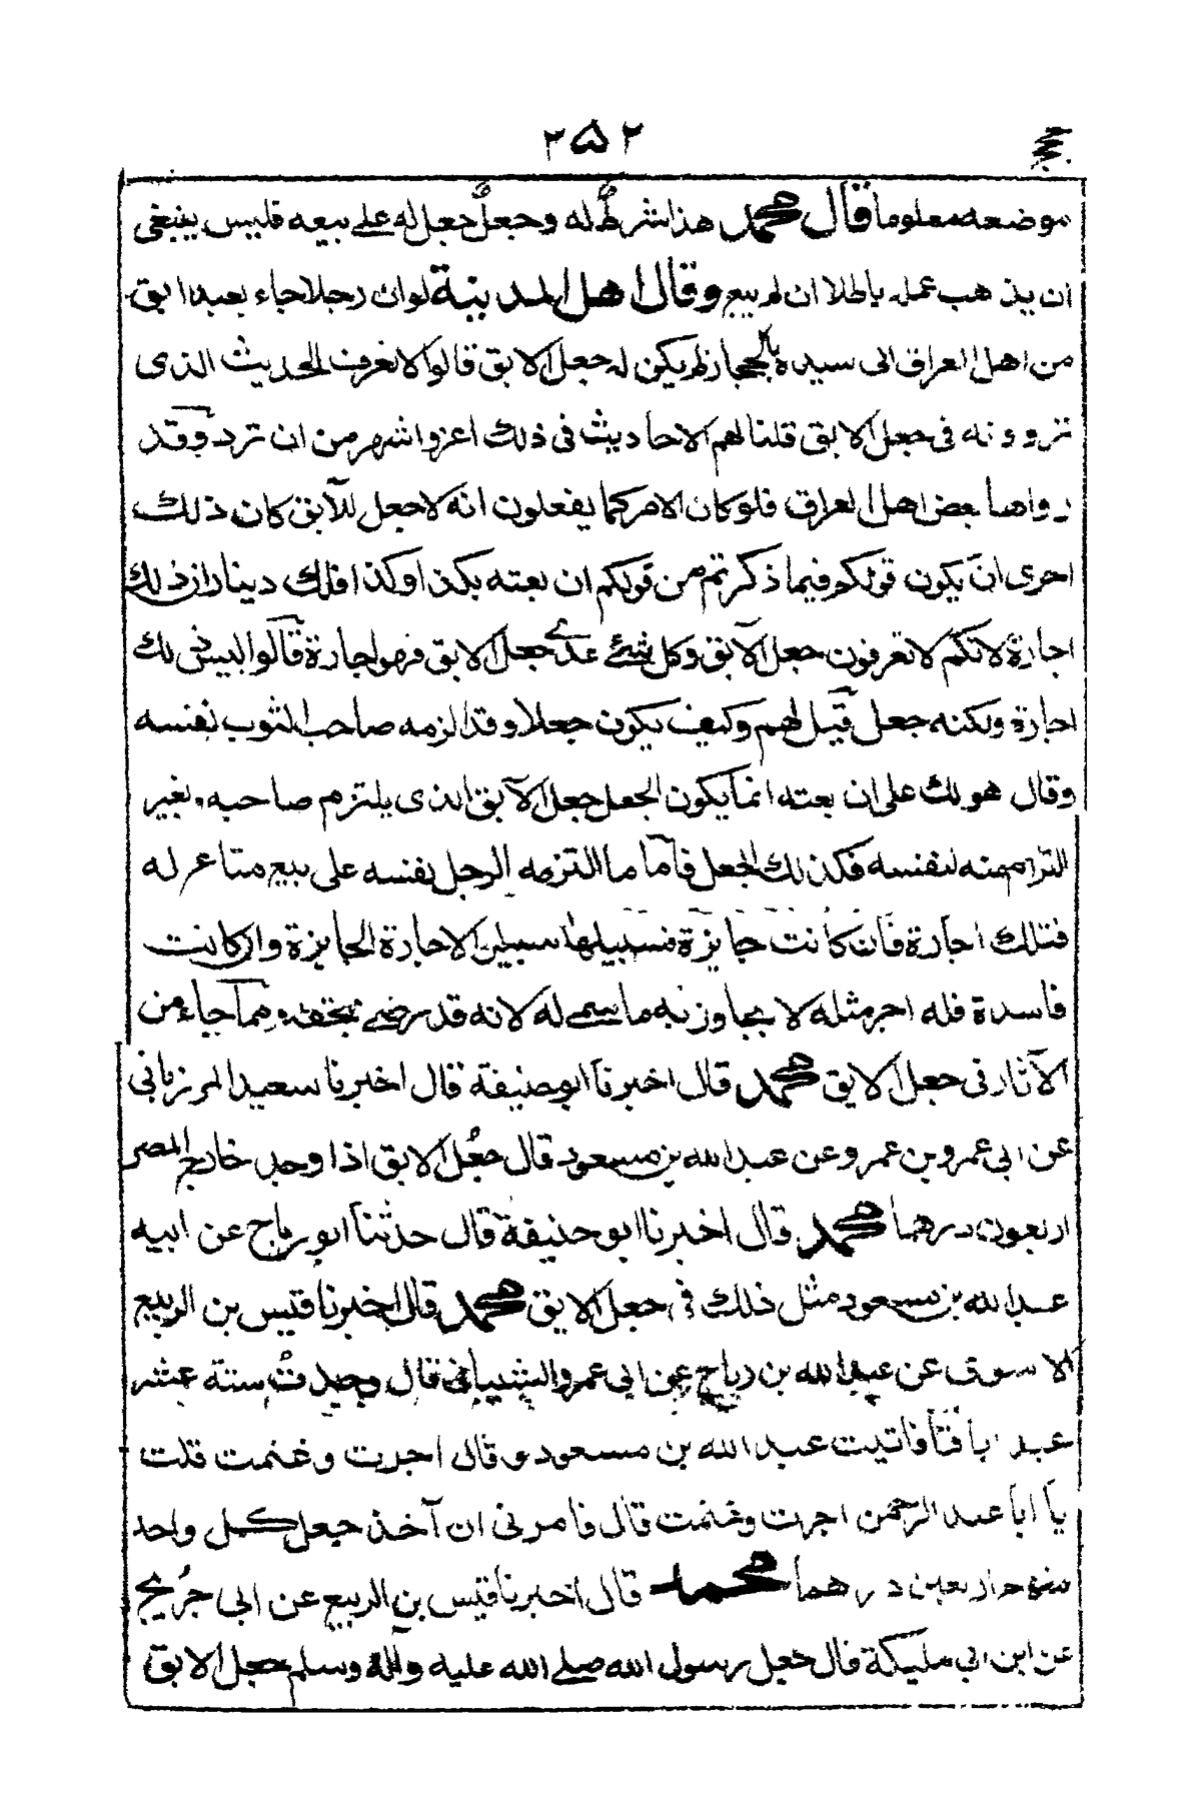 حج
٢٥٢
موضعه معلوما قال محمد هذا شرط له وجعل جعل له على بيعه فليس ينبغى
ان يذهب عمله باطلا ان لم يبع وقال اهل المدينة لو ان رجلا جاء بعبد ابق
من اهل العراق الى سيده بالحجاز لم يكن له جعل الابق قالوا لا نعرف الحديث الذى
تروونه فى جعل الابق قلنا لهم الاحاديث فى ذلك اعز واشهر من ان ترد وقد
رواها بعض اهل العراق فلو كان الامر كما يفعلون انه لا جعل للآبق كان ذلك
احرى ان يكون قولكم فيما ذكرتم من قولكم ان بعته بكذا وكذا فلك دينار ان ذلك
اجارة لانكم لا تعرفون جعل الآبق وكل شئ عدى جعل الابق فهو اجارة قالوا ليس فى لك
اجارة ولكنه جعل قيل لهم وكيف يكون جعلا وقد الزمه صاحب الثوب نفسه
وقال هو لك على ان بعته انما يكون الجعل جعل الآبق الذى يلتزم صاحبه بغير
التزام منه لنفسه فكذلك الجعل فاما ما التزمه الرجل نفسه على بيع متاعر له
فتلك اجارة فان كانت جايزة فسبيلها سبيل الاجارة الجايزة وان كانت
فاسدة فله اجر مثله لا يجاوز به ما سمى له لانه قد رضى بحقه ومما جاء من
الآثار فى جعل الابق محمد قال اخبرنا ابو حنيفة قال اخبرنا سعيد المرزبانى
عن ابى عمرو بن عمرو عن عبد الله بن مسعود قال جعل الابق اذا وجد خارج المصر
اربعون درهما محمد قال اخبرنا ابو حنيفة قال حدثنا ابو رباح عن ابيه
عبد الله بن مسعود مثل ذلك فى جعل الابق محمد قال اخبرنا قيس بن الربيع
الا سوى عن عبد الله بن رباح عن ابى عمرو الشيبانى قال وجدت ستة عشر
عبد ابا قنا فاتيت عبد الله بن مسعود وقال اجرت وغنمت قلت
يا ابا عبد الرحمن اجرت وغنمت قال فامرنى ان آخذ جعل كل واحد
منهم اربعين درهما محمد قال اخبرنا قيس بن الربيع عن ابى جريج
عن ابن ابى مليكة قال جعل رسول الله صلى الله عليه وآله وسلم جعل الابق